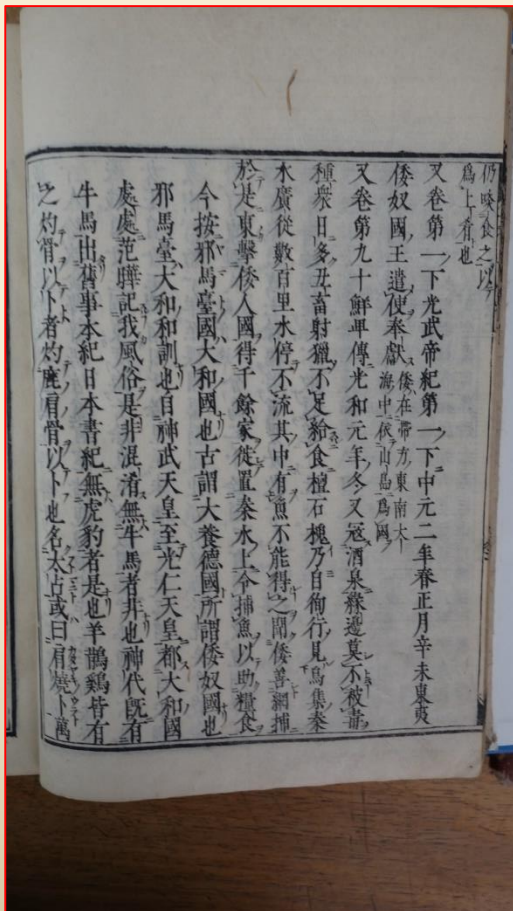 仍噉食之以
爲上肴也
又卷第一下光武帝紀第一下中元二年春正月辛未東夷
倭奴國王遣使奉獻倭在帶方東南大
海中依山島爲國
又卷第九十鮮卑傳光和元年冬又寇酒泉緣邊莫不被毒
種衆日多田畜射獵不足給食檀石槐乃自徇行見烏集秦
水廣從數百里水停不流其中有魚不能得之聞倭善網捕
於是東擊倭人國得千餘家徙置秦水上令捕魚以助糧食
今按邪馬臺國大和國也古謂大養德國所謂倭奴國也
邪馬臺大和和訓也自神武天皇至光仁天皇都大和國
處處范曄記我風俗是非混淆無牛馬者非也神代旣有
牛馬出舊事本紀日本書紀無虎豹者是也羊鵲鷄皆有
之灼骨以卜者灼鹿肩骨以卜也名太占或曰肩燒卜萬